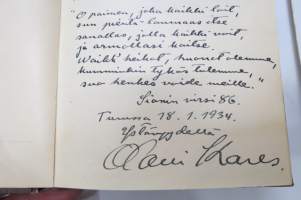 "O paimen, joka kaikki loit,
sun perit- laumaas itse
sanallas, jolla kaikki voit,
ja armollasi kaitse.
Waikk' heikot, huonot olemme,
kumminkin tykös tulemme,
suo henkes voide meille."
Sionin virsi 86.
Turussa 18.1.1934.
Ystävyydellä
Olavi Kares.